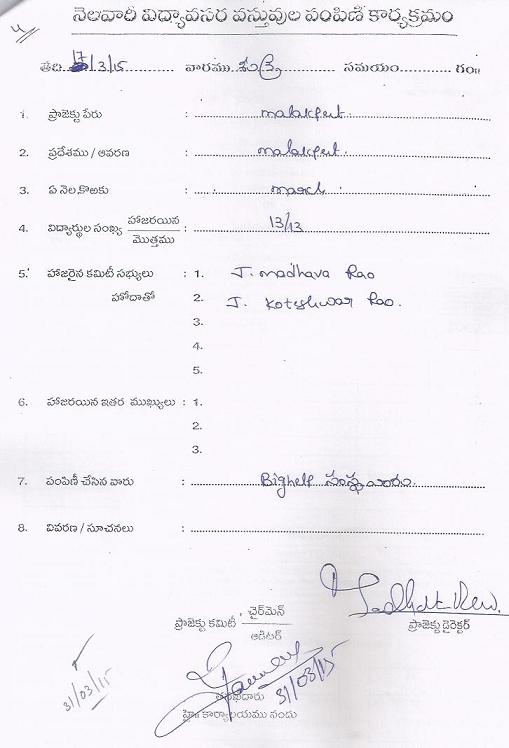 నెలవారీ విద్యావసర వస్తువుల పంపిణీ కార్యక్రమం
తేది 17/3/15 వారము శుక్ర సమయం గం॥
1. ప్రాజెక్టు పేరు : malakpet
2. ప్రదేశము / ఆవరణ : malakpet
3. ఏ నెల కొఱకు : march
4. విద్యార్థుల సంఖ్య హాజరయిన / మొత్తము : 13/13
5. హాజరైన కమిటీ సభ్యులు : 1. J. madhava Rao
హోదాతో 2. J. Koteshwar Rao.
3.
4.
5.
6. హాజరయిన ఇతర ముఖ్యులు : 1.
2.
3.
7. పంపిణీ చేసిన వారు : Bighelf
8. వివరణ / సూచనలు :
ప్రాజెక్టు కమిటీ ఛైర్‌మెన్ / ఆడిటర్
ప్రాజెక్టు డైరెక్టర్
31/03/15
31/03/15
కార్యాలయము నందు